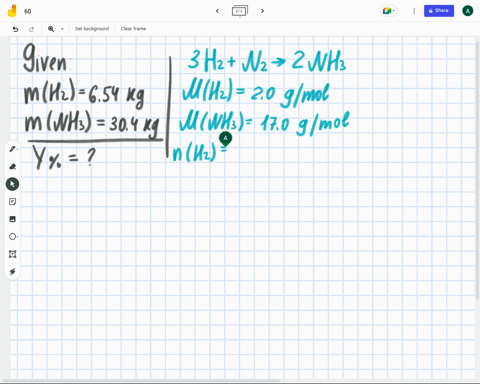 60
Share
A
Set background
Clear frame
Given
m(H₂)=6.54 kg
m(NH₃)=30.4 kg
Y% = ?
3H₂ + N₂ → 2NH₃
M(H₂) = 2.0 g/mol
M(NH₃) = 17.0 g/mol
A
n(H₂) =